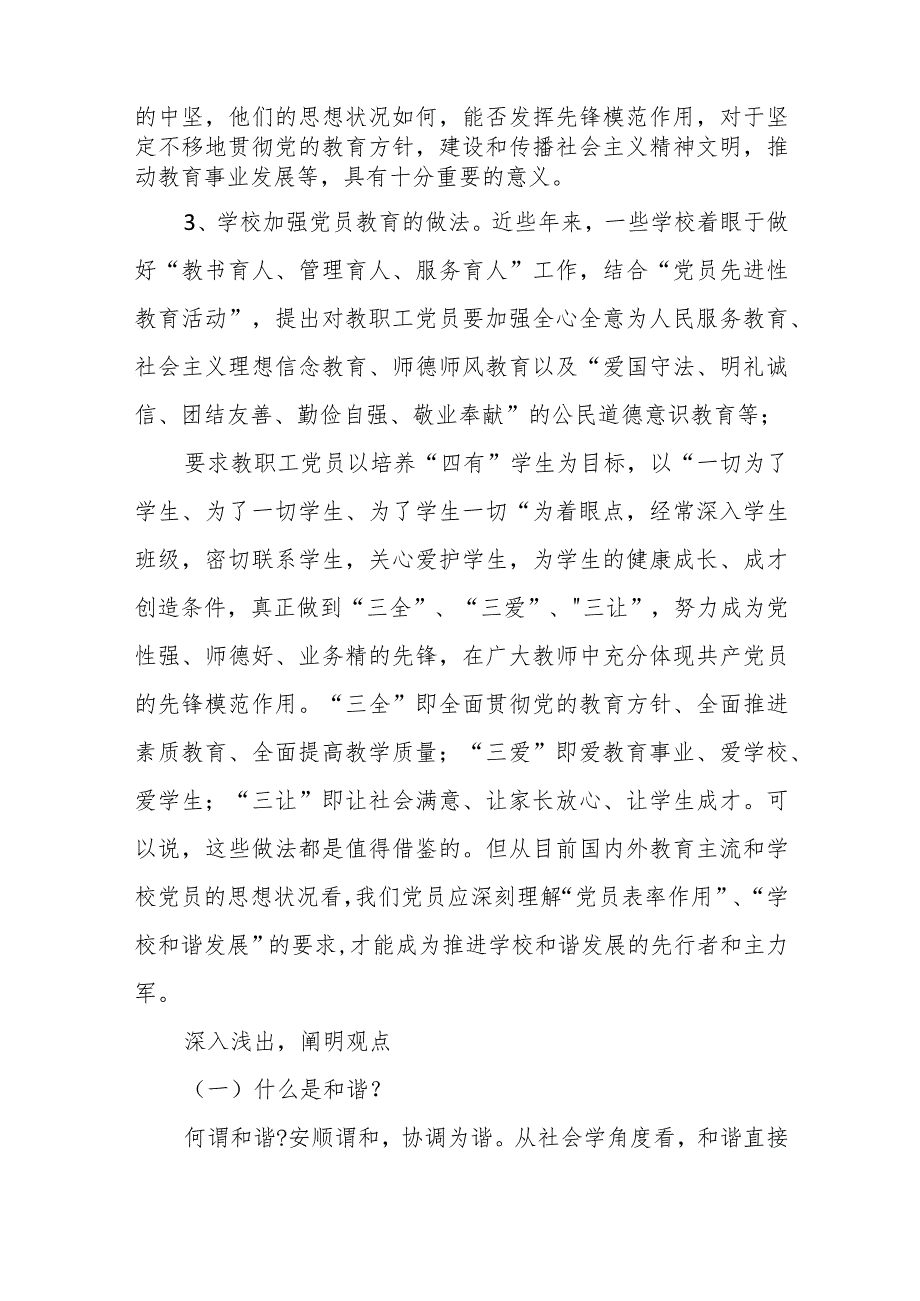 的中坚，他们的思想状况如何，能否发挥先锋模范作用，对于坚
定不移地贯彻党的教育方针，建设和传播社会主义精神文明，推
动教育事业发展等，具有十分重要的意义。
3、学校加强党员教育的做法。近些年来，一些学校着眼于做
好“教书育人、管理育人、服务育人”工作，结合“党员先进性
教育活动”，提出对教职工党员要加强全心全意为人民服务教育、
社会主义理想信念教育、师德师风教育以及“爱国守法、明礼诚
信、团结友善、勤俭自强、敬业奉献”的公民道德意识教育等；
要求教职工党员以培养“四有”学生为目标，以“一切为了
学生、为了一切学生、为了学生一切“为着眼点，经常深入学生
班级，密切联系学生，关心爱护学生，为学生的健康成长、成才
创造条件，真正做到“三全”、“三爱”、"三让”，努力成为党
性强、师德好、业务精的先锋，在广大教师中充分体现共产党员
的先锋模范作用。“三全”即全面贯彻党的教育方针、全面推进
素质教育、全面提高教学质量；“三爱”即爱教育事业、爱学校、
爱学生；“三让”即让社会满意、让家长放心、让学生成才。可
以说，这些做法都是值得借鉴的。但从目前国内外教育主流和学
校党员的思想状况看,我们党员应深刻理解“党员表率作用”、“学
校和谐发展”的要求,才能成为推进学校和谐发展的先行者和主力
军。
深入浅出，阐明观点
（一）什么是和谐？
何谓和谐?安顺谓和，协调为谐。从社会学角度看，和谐直接